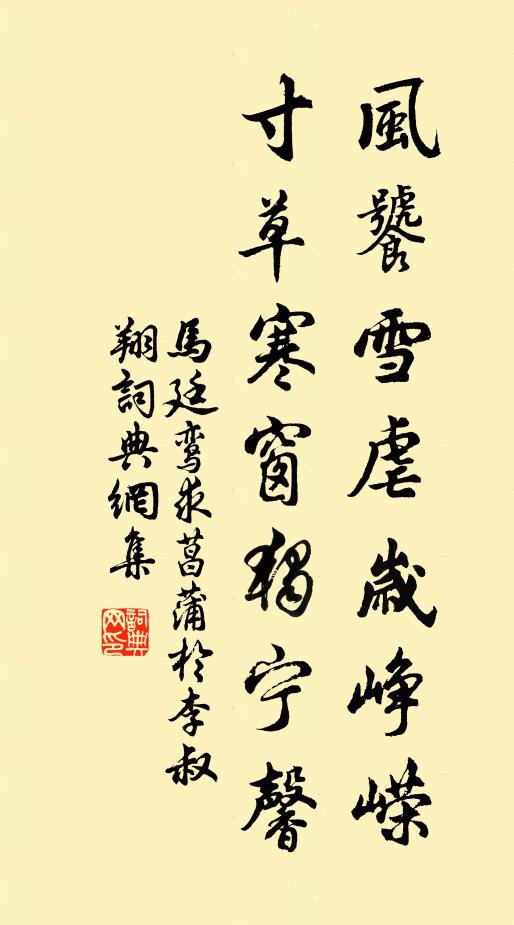 風饕雪虐歲崢嶸
寸草寒窗獨宁馨
馬廷鸾求菖蒲於李叔
翔詞典網集
詞典
网印